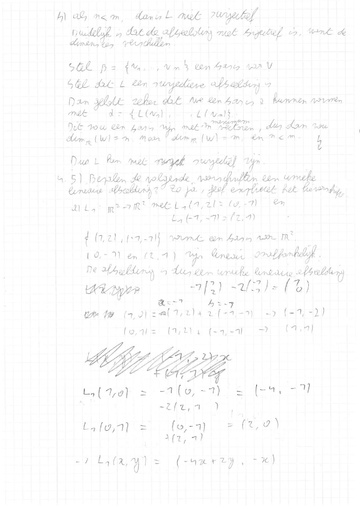 b) als n<m, dan is L niet surjectief
Duidelijk is dat de afbeelding niet bijectief is, want de
dimensies verschillen
Stel β = {v₁ ... vₙ} een basis van V
Stel dat L een surjectieve afbeelding is
Dan geldt zeker dat we een basis kunnen vormen
met α = {L(v₁) ... L(vₙ)}
Dit zou een basis zijn met vectoren, dus dan zou
dim (W) = n maar dim (W) = m en n<m
Dus L kan niet surjectief zijn.
4. 5) Bepalen de volgende voorschriften een unieke
lineaire afbeelding? Zo ja, geef expliciet het
a) L₁ ℝ² → ℝ² met L₁(1,2) = (0,-1) en
L₁(-1,-1) = (2,1)
{(1,2), (-1,-1)} vormt een basis voor ℝ²
(0,-1) en (2,1) zijn lineair onafhankelijk.
De afbeelding is dus een unieke lineaire afbeelding
-1(1 2) -2(-1 -1) = (1 0)
a=-1 b=-2
(0,1) = (1,2) + (-1,-1) → (1,1)
L₁(1,0) = -1(0,-1) = (-4,-1)
-2(2,1)
L₁(0,1) = (0,-1) = (2,0)
+(2,1)
→ L₁(x,y) = (-4x+2y, -x)